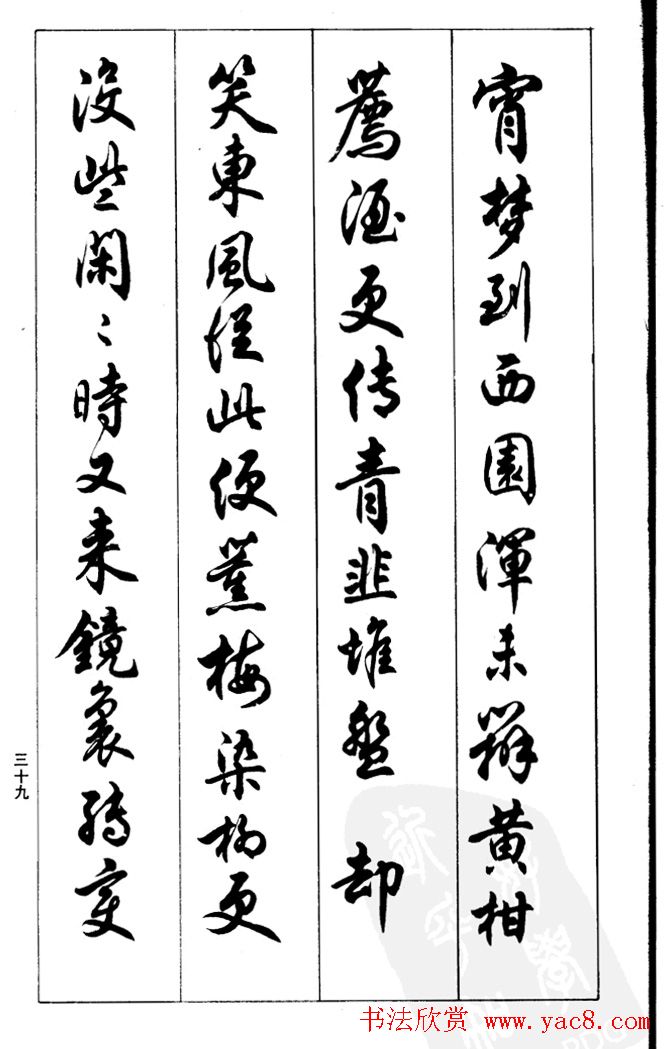 宵梦到西園渾未辦黄柑
薦酒更传青韭堆盤 却
笑東風從此便薰梅染柳更
没些閑〻時又来鏡裏轉变
三十九
书法欣赏 www.yac8.com